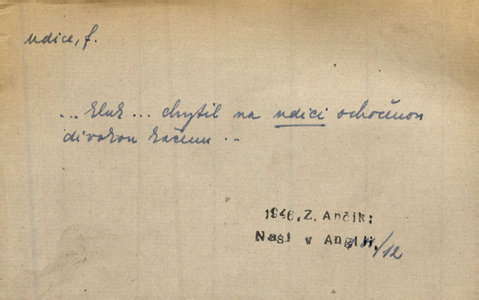 udice, f.
... kluk ... chytil na udici ochočenou
divokou kačenu ..
1946, Z. Ančík:
Naši v Anglii, /12